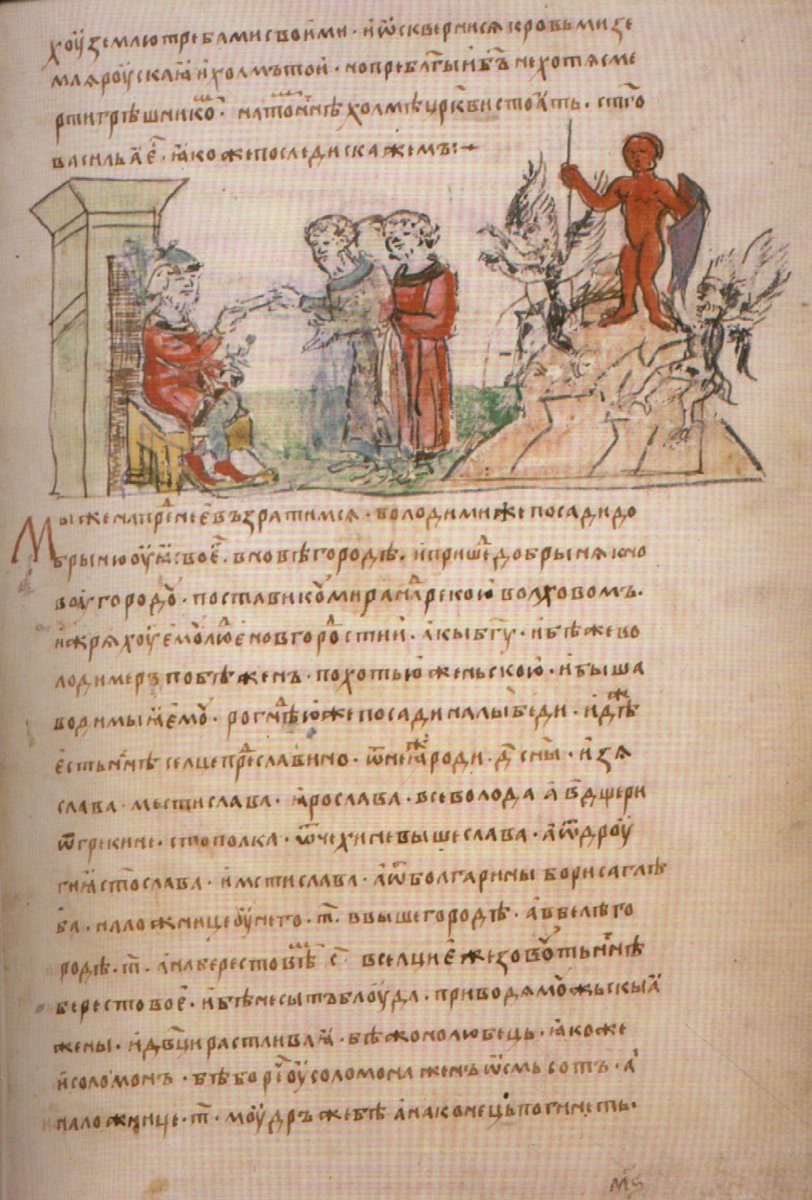 хоу землю требами своими · и ѿсквернися кровьми зе
мля роускаꙗ и холмъ той · но преблгыи бъ не хотя сме
рти грѣшнико · на том нѣ холмѣ црк҃ви стоꙗть · ст҃го
васильꙗ є · ꙗкоже последи скажемъ:
Мы же на пре нєє възратимся · володими же посади до
брыню оуꙗ своє · в новѣгородѣ · и прише добрыня к но
воу городу · постави коуми ра на рекою волховом ·
и жряхоу ємо людє новгоро стии · акы бг҃у · и бѣ же во
лодимеръ побѣженъ · похотью женьскою · и быша
водимыꙗ ємо · рогнѣ юже посади на лыбеди · идѣ
єсть нн҃ѣ селце преславино · ѿ нея роди · д҃ сн҃ы · изя
слава · местислава · ꙗрослава · всеволода а в҃ дщери
ѿ грекине · ст҃ополка · ѿ чехине вышеслава · а ѿ дроу
гиꙗ ст҃ослава · и мстислава · а ѿ болгарины бориса глѣ
ба · наложниць оу него · т҃ · в вышегородѣ · а в белѣго
родѣ · т҃ · а на берестовѣ с҃ в селци єже зовоуть нн҃ѣ
берестовоє · и бѣ несытъ блоуда · приводя к собѣ моужьскыꙗ
жены · и дв҃ци растливаꙗ · бѣ женолюбець · ꙗкоже
и соломонъ · бѣ бо ре оу соломона женъ ѿсмьсотъ · а
наложниць · т҃ · моудръ же бѣ а наконець погибе